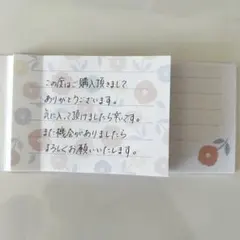 この度はご購入頂きまして
ありがとうございます。
気に入って頂けましたら幸いです。
また機会がありましたら
よろしくお願いいたします。